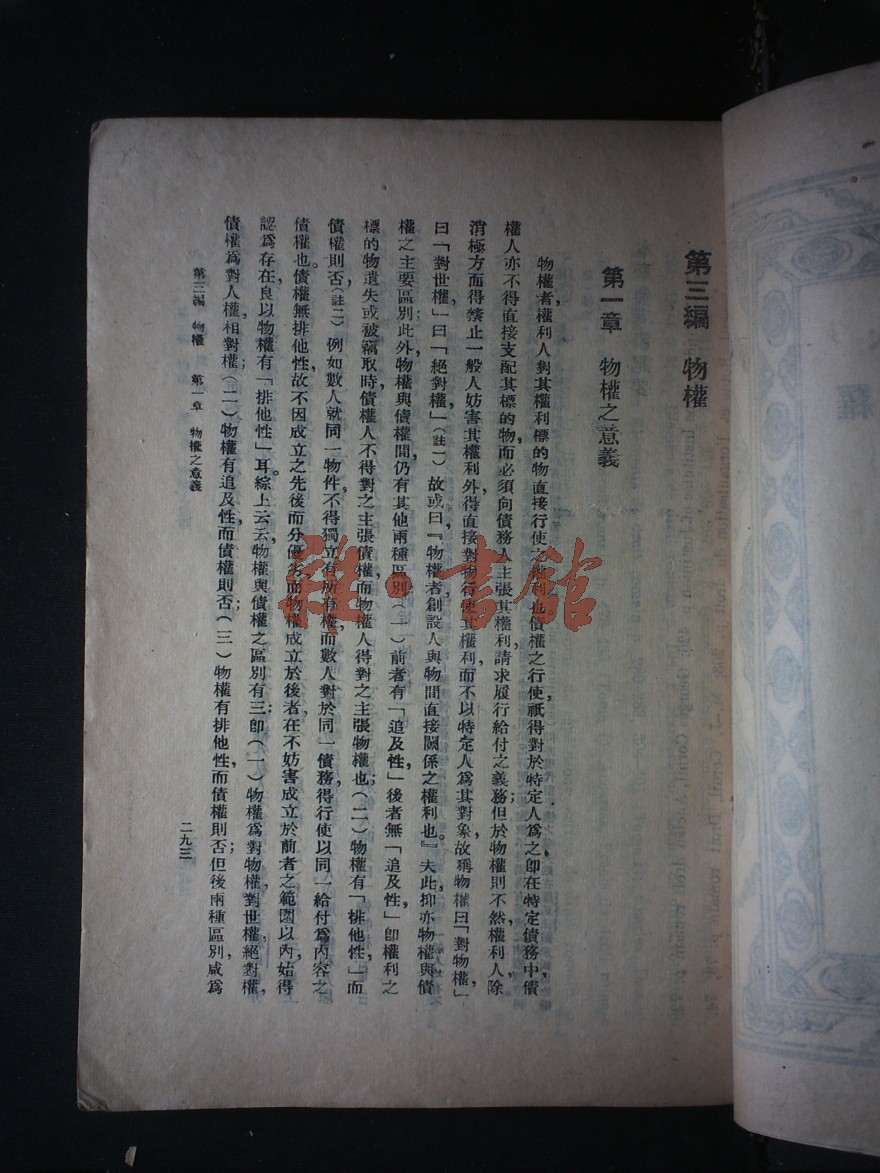 第三編　物權
第一章　物權之意義
物權者權利人對其權利標的物直接行使之權利也債權之行使，祇得對於特定人爲之，卽在特定債務中，債
權人亦不得直接支配其標的物，而必須向債務人主張其權利，請求履行給付之義務；但於物權則不然，權利人除
消極方面得禁止一般人妨害其權利外，得直接對物行使其權利，而不以特定人爲其對象，故稱物權曰「對物權，」
曰「對世權，」曰「絕對權」（註一）故或曰：『物權者，創設人與物間直接關係之權利也。』夫此抑亦物權與債
權之主要區別，此外物權與債權間仍有其他兩種區別：（一）前者有「追及性，」後者無「追及性，」卽權利之
標的物遺失或被竊取時，債權人不得對之主張債權，而物權人得對之主張物權也；（二）物權有「排他性，」而
債權則否（註二）例如數人就同一物件，不得獨立有所有權，而數人對於同一債務，得行使以同一給付爲內容之
債權也。債權無排他性，故不因成立之先後而分優劣，而物權成立於後者，在不妨害成立於前者之範圍以內，始得
認爲存在，良以物權有「排他性」耳。綜上云云，物權與債權之區別有三，卽（一）物權爲對物權，對世權，絕對權，
債權爲對人權，相對權；（二）物權有追及性，而債權則否；（三）物權有排他性，而債權則否；但後兩種區別，咸爲
第三編　物權　第一章　物權之意義
二九三
雜·書館